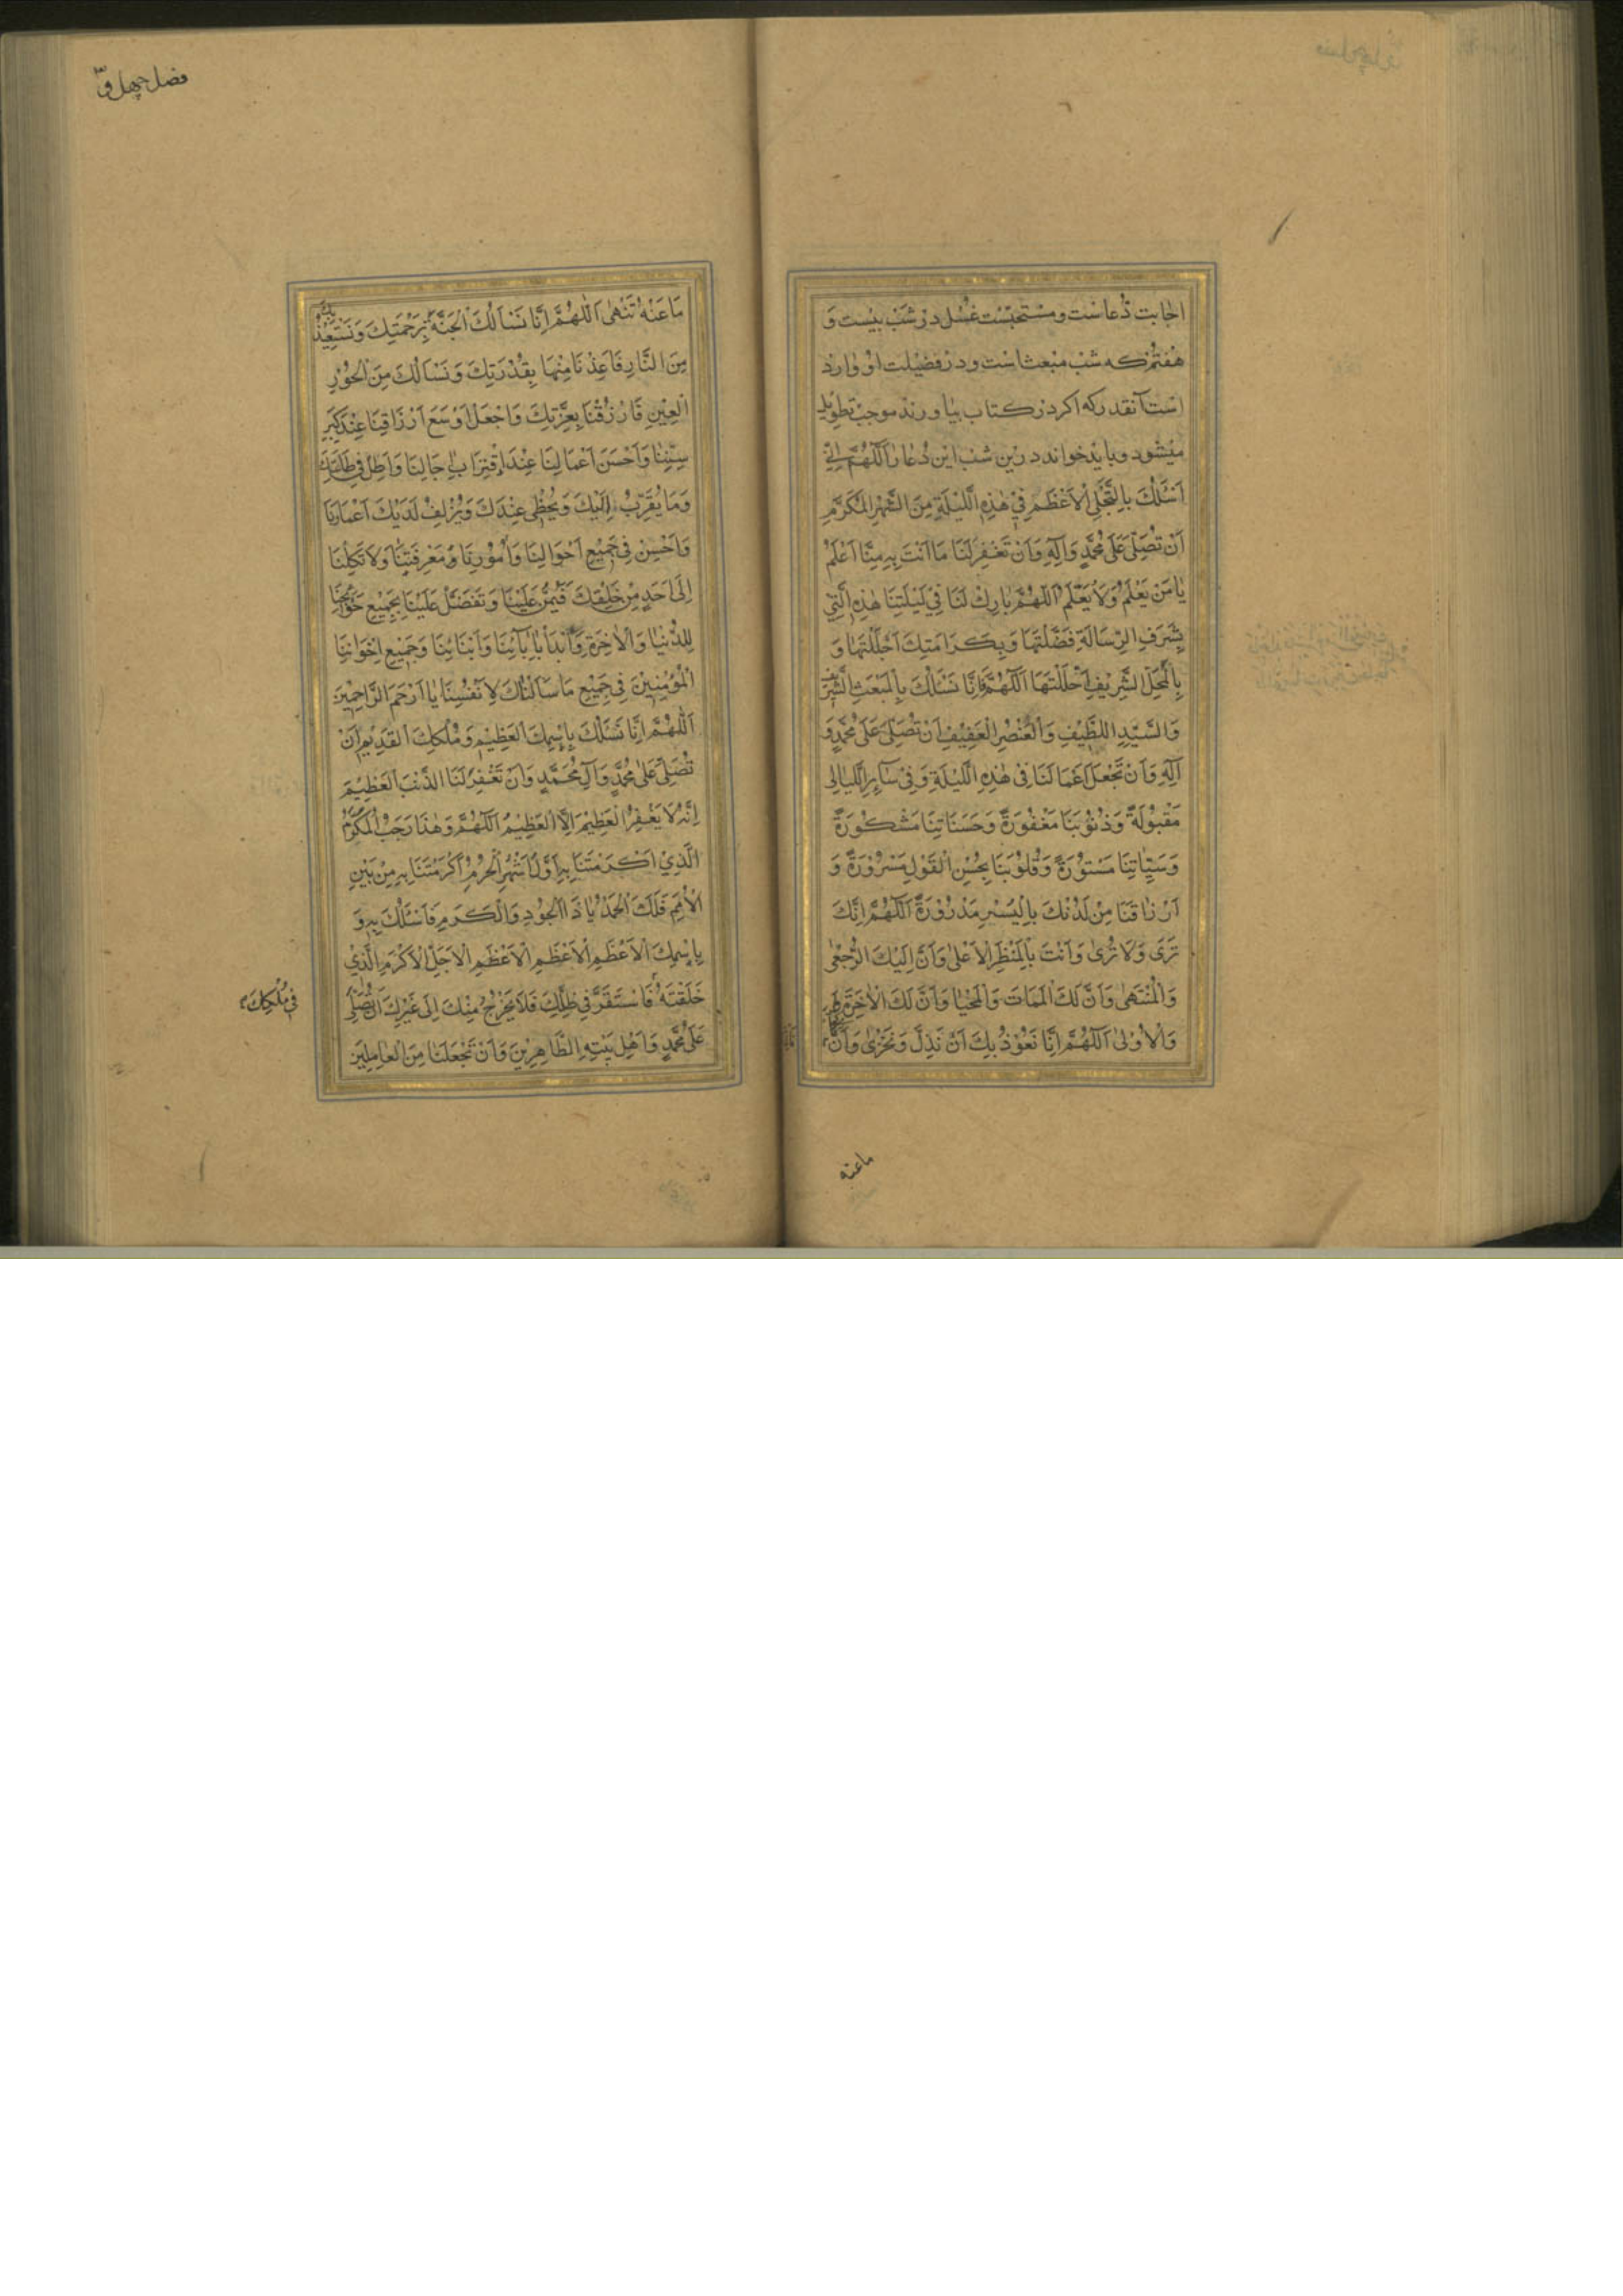 اجابت دعاست و مستحبست غسل در شب بیست و
هفتم که شب مبعث است و در فضیلت او وارد
است آنقدر که اکر در کتاب بیاورند موجب تطویل
میشود و باید خواند درین شب این دعا را اَللّٰهُمَّ اِنّی
اَسْئَلُكَ بِالتَّجَلِّی الْاَعْظَمِ فِیْ هٰذِهِ الَّلیْلَةِ مِنَ الشَّهْرِ الْمُكَرَّمِ
اَنْ تُصَلِّیَ عَلٰی مُحَمَّدٍ وَآلِهِ وَاَنْ تَغْفِرَ لَنَا مَا اَنْتَ بِهِ مِنَّا اَعْلَمُ
یٰا مَنْ یَعْلَمُ وَلَا یُعَلَّمُ اَللّٰهُمَّ بَارِكْ لَنَا فِیْ لَیْلَتِنَا هٰذِهِ الَّتِیْ
بِشَرَفِ الرِّسَالَةِ فَضَّلْتَهَا وَبِكَرَامَتِكَ اَجْلَلْتَهَا وَ
بِالْمَحَلِّ الشَّرِیْفِ اَحْلَلْتَهَا اَللّٰهُمَّ فَاِنَّا نَسْئَلُكَ بِالْمَبْعَثِ الشَّرِیْفِ
وَالسَّیِّدِ اللَّطِیْفِ وَالْعُنْصُرِ الْعَفِیْفِ اَنْ تُصَلِّیَ عَلٰی مُحَمَّدٍ وَ
آلِهِ وَاَنْ تَجْعَلَ اَعْمَالَنَا فِیْ هٰذِهِ الَّلیْلَةِ وَفِیْ سَآئِرِ الَّلیَالِی
مَقْبُوْلَةً وَذُنُوْبَنَا مَغْفُوْرَةً وَحَسَنَاتِنَا مَشْكُوْرَةً
وَسَیِّئٰاتِنَا مَسْتُوْرَةً وَقُلُوْبَنَا بِحُسْنِ الْقَوْلِ مَسْرُوْرَةً وَ
اَرْزَاقَنَا مِنْ لَدُنْكَ بِالْیُسْرِ مَدْرُوْرَةً اَللّٰهُمَّ اِنَّكَ
تَرٰی وَلَا تُرٰی وَاَنْتَ بِالْمَنْظَرِ الْاَعْلٰی وَاَنَّ اِلَیْكَ الرُّجْعٰی
وَالْمُنْتَهٰی وَاَنَّ لَكَ الْمَمَاتَ وَالْمَحْیَا وَاَنَّ لَكَ الْاٰخِرَةَ
وَالْاُوْلٰی اَللّٰهُمَّ اِنَّا نَعُوْذُ بِكَ اَنْ نَذِلَّ وَنَخْزٰی وَاَنْ
ماعنه
فصل چهل و
مَا عَنْهُ تَنْهٰی اَللّٰهُمَّ اِنَّا نَسْاَلُكَ الْجَنَّةَ بِرَحْمَتِكَ وَنَسْتَعِیْذُ بِكَ
مِنَ النَّارِ فَاَعِذْنَا مِنْهَا بِقُدْرَتِكَ وَنَسْاَلُكَ مِنَ الْحُوْرِ
الْعِیْنِ فَارْزُقْنَا بِعِزَّتِكَ وَاجْعَلْ اَوْسَعَ اَرْزَاقِنَا عِنْدَ كِبَرِ
سِنِّنَا وَاَحْسَنَ اَعْمَالِنَا عِنْدَ اِقْتِرَابِ اٰجَالِنَا وَاَطِلْ فِیْ طَاعَتِكَ
وَمَا یُقَرِّبُ اِلَیْكَ وَیُحْظِیْ عِنْدَكَ وَیُزْلِفُ لَدَیْكَ اَعْمَارَنَا
وَاَحْسِنْ فِیْ جَمِیْعِ اَحْوَالِنَا وَاُمُوْرِنَا وَمَعْرِفَتِنَا وَلَا تَكِلْنَا
اِلٰی اَحَدٍ مِنْ خَلْقِكَ فَیَمُنَّ عَلَیْنَا وَتَفَضَّلْ عَلَیْنَا بِجَمِیْعِ حَوَآئِجِنَا
لِلدُّنْیٰا وَالْاٰخِرَةِ وَاَبْدَأْ بِاٰبَآئِنَا وَاَبْنَائِنَا وَجَمِیْعِ اِخْوَانِنَا
الْمُؤْمِنِیْنَ فِیْ جَمِیْعِ مَا سَاَلْنَاكَ لِاَنْفُسِنَا یٰا اَرْحَمَ الرَّاحِمِیْنَ
اَللّٰهُمَّ اِنَّا نَسْئَلُكَ بِاِسْمِكَ الْعَظِیْمِ وَمُلْكِكَ الْقَدِیْمِ اَنْ
تُصَلِّیَ عَلٰی مُحَمَّدٍ وَآلِ مُحَمَّدٍ وَاَنْ تَغْفِرَ لَنَا الذَّنْبَ الْعَظِیْمَ
اِنَّهُ لَا یَغْفِرُ الْعَظِیْمَ اِلَّا الْعَظِیْمُ اَللّٰهُمَّ وَهٰذَا رَجَبُ الْمُكَرَّمُ
الَّذِیْ اَكْرَمْتَنَا بِهِ اَوَّلُ اَشْهُرِ الْحُرُمِ اَكْرَمْتَنَا بِهِ مِنْ بَیْنِ
الْاُمَمِ فَلَكَ الْحَمْدُ یٰا ذَا الْجُوْدِ وَالْكَرَمِ فَاَسْئَلُكَ بِهِ وَ
بِاِسْمِكَ الْاَعْظَمِ الْاَعْظَمِ الْاَعْظَمِ الْاَجَلِّ الْاَكْرَمِ الَّذِیْ
خَلَقْتَهُ فَاسْتَقَرَّ فِیْ ظِلِّكَ فَلَا یَخْرُجُ مِنْكَ اِلٰی غَیْرِكَ اَنْ تُصَلِّیَ
فِیْ مُلْكِكَ
عَلٰی مُحَمَّدٍ وَاَهْلِ بَیْتِهِ الطَّاهِرِیْنَ وَاَنْ تَجْعَلَنَا مِنَ الْعَامِلِیْنَ